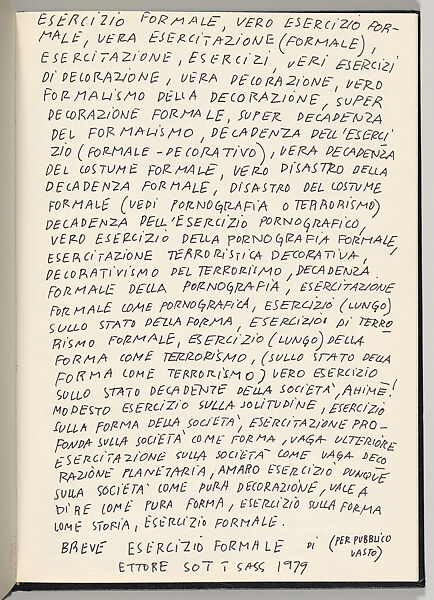 ESERCIZIO FORMALE, VERO ESERCIZIO FOR-
MALE, VERA ESERCITAZIONE (FORMALE),
ESERCITAZIONE, ESERCIZI, VERI ESERCIZI
DI DECORAZIONE, VERA DECORAZIONE, VERO
FORMALISMO DELLA DECORAZIONE, SUPER
DECORAZIONE FORMALE, SUPER DECADENZA
DEL FORMALISMO, DECADENZA DELL'ESERCI
ZIO (FORMALE-DECORATIVO), VERA DECADENZA
DEL COSTUME FORMALE, VERO DISASTRO DELLA
DECADENZA FORMALE, DISASTRO DEL COSTUME
FORMALE (VEDI PORNOGRAFIA O TERRORISMO)
DECADENZA DELL'ESERCIZIO PORNOGRAFICO,
VERO ESERCIZIO DELLA PORNOGRAFIA FORMALE,
ESERCITAZIONE TERRORISTICA DECORATIVA,
DECORATIVISMO DEL TERRORISMO, DECADENZA
FORMALE DELLA PORNOGRAFIA, ESERCITAZIONE
FORMALE COME PORNOGRAFICA, ESERCIZIO (LUNGO)
SULLO STATO DELLA FORMA, ESERCIZIO DI TERRO
RISMO FORMALE, ESERCIZIO (LUNGO) DELLA
FORMA COME TERRORISMO, (SULLO STATO DELLA
FORMA COME TERRORISMO) VERO ESERCIZIO
SULLO STATO DECADENTE DELLA SOCIETÀ, AHIMÉ!
MODESTO ESERCIZIO SULLA SOLITUDINE, ESERCIZIO
SULLA FORMA DELLA SOCIETÀ, ESERCITAZIONE PRO-
FONDA SULLA SOCIETÀ COME FORMA, VAGA ULTERIORE
ESERCITAZIONE SULLA SOCIETÀ COME VAGA DECO
RAZIONE PLANETARIA, AMARO ESERCIZIO DUNQUE
SULLA SOCIETÀ COME PURA DECORAZIONE, VALE A
DIRE COME PURA FORMA, ESERCIZIO SULLA FORMA
COME STORIA, ESERCIZIO FORMALE.
BREVE ESERCIZIO FORMALE DI (PER PUBBLICO
VASTO)
ETTORE SOTTSASS 1979